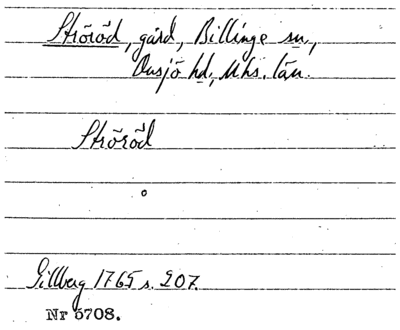 Ströröd, gård, Billinge sn,
Onsjö hd, Mhs. län.
Ströröd
Gillberg 1765 s. 207.
Nr 5708.